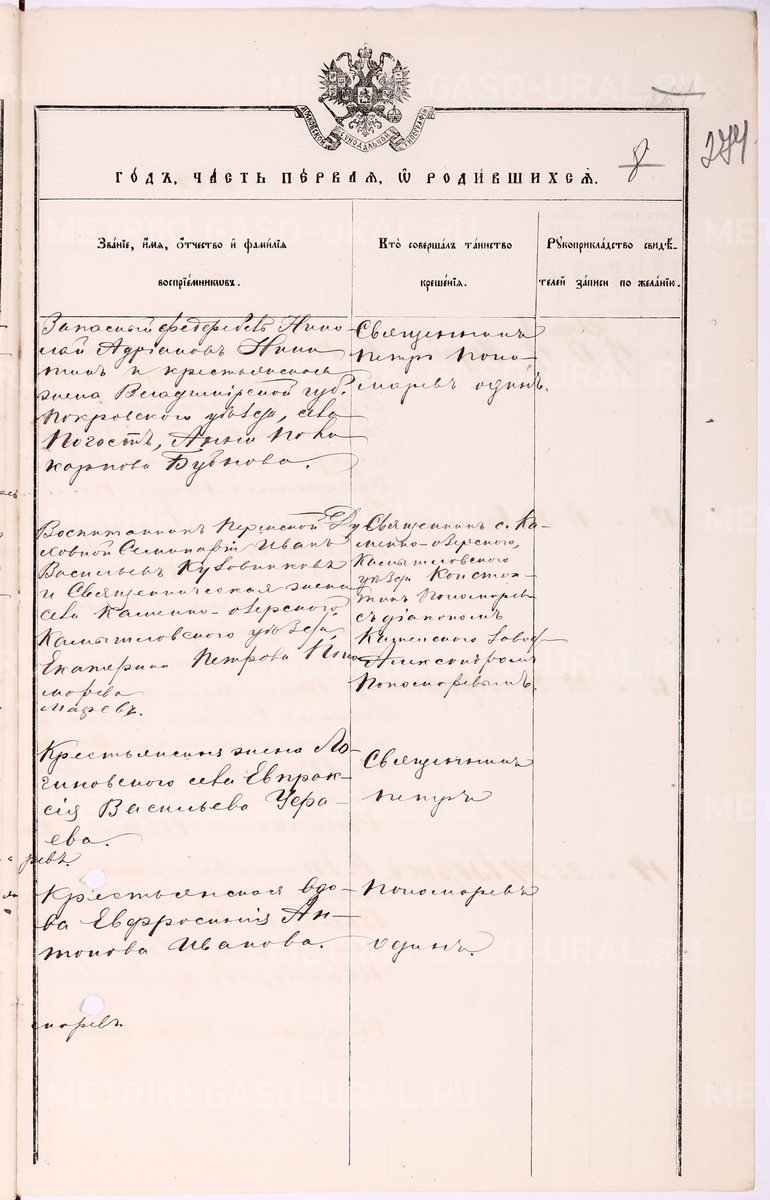 METRIKI.GASO-URAL.RU
МОСКОВСКОЙ СѴНОДАЛЬНОЙ ТИПОГРАФІИ
274
ГО́ДЪ, ЧА́СТЬ ПЕ́РВАЯ, Ѽ РОДИ́ВШИХСЯ.
8
Зва́нїе, и҆́мя, ѻ҆́тчество и҆ фами́лїя
воспрїе́мниковъ.
Кто̀ соверша́лъ та́инство
креще́нїя.
Рꙋкоприкла́дство свидѣ́-
телей за́писи по жела́нїю.
Запасный Нико-
лай Адріановъ Ники
тинъ и крестьянская
жена Владимірской губ.
Покровскаго уѣзда, села
Погостъ, Анна Поли
карпова Бубнова.
Священникъ
Петръ Поно-
маревъ одинъ.
Воспитанникъ Пермской Ду
ховной Семинаріи Иванъ
Васильевъ
и Священническая жена
села Каменно-озерскаго,
Камышловскаго уѣзда,
Екатерина Петрова Поно
марева
Священникъ с. Ка-
менно-озерскаго,
Камышловскаго
уѣзда Констан-
тинъ Пономаревъ
съ діакономъ
Каменскаго завода
Александромъ
Пономаревымъ.
Крестьянская жена Ло-
гиновскаго села Евпрак-
сія Васильева
ева.
Священникъ
Петръ
Крестьянская вдо-
ва Евфросинія Ан-
тонова Иванова.
Пономаревъ
одинъ.
маревъ